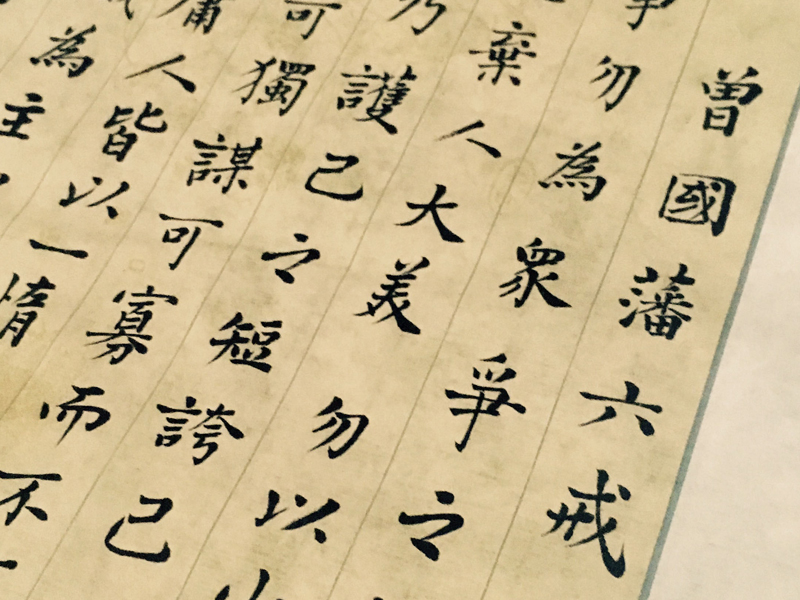 曾國藩六戒
事勿為眾爭之
棄人大美勿以小
乃護己之短誇己
可獨謀可寡而不
庸人皆以一惰
為主